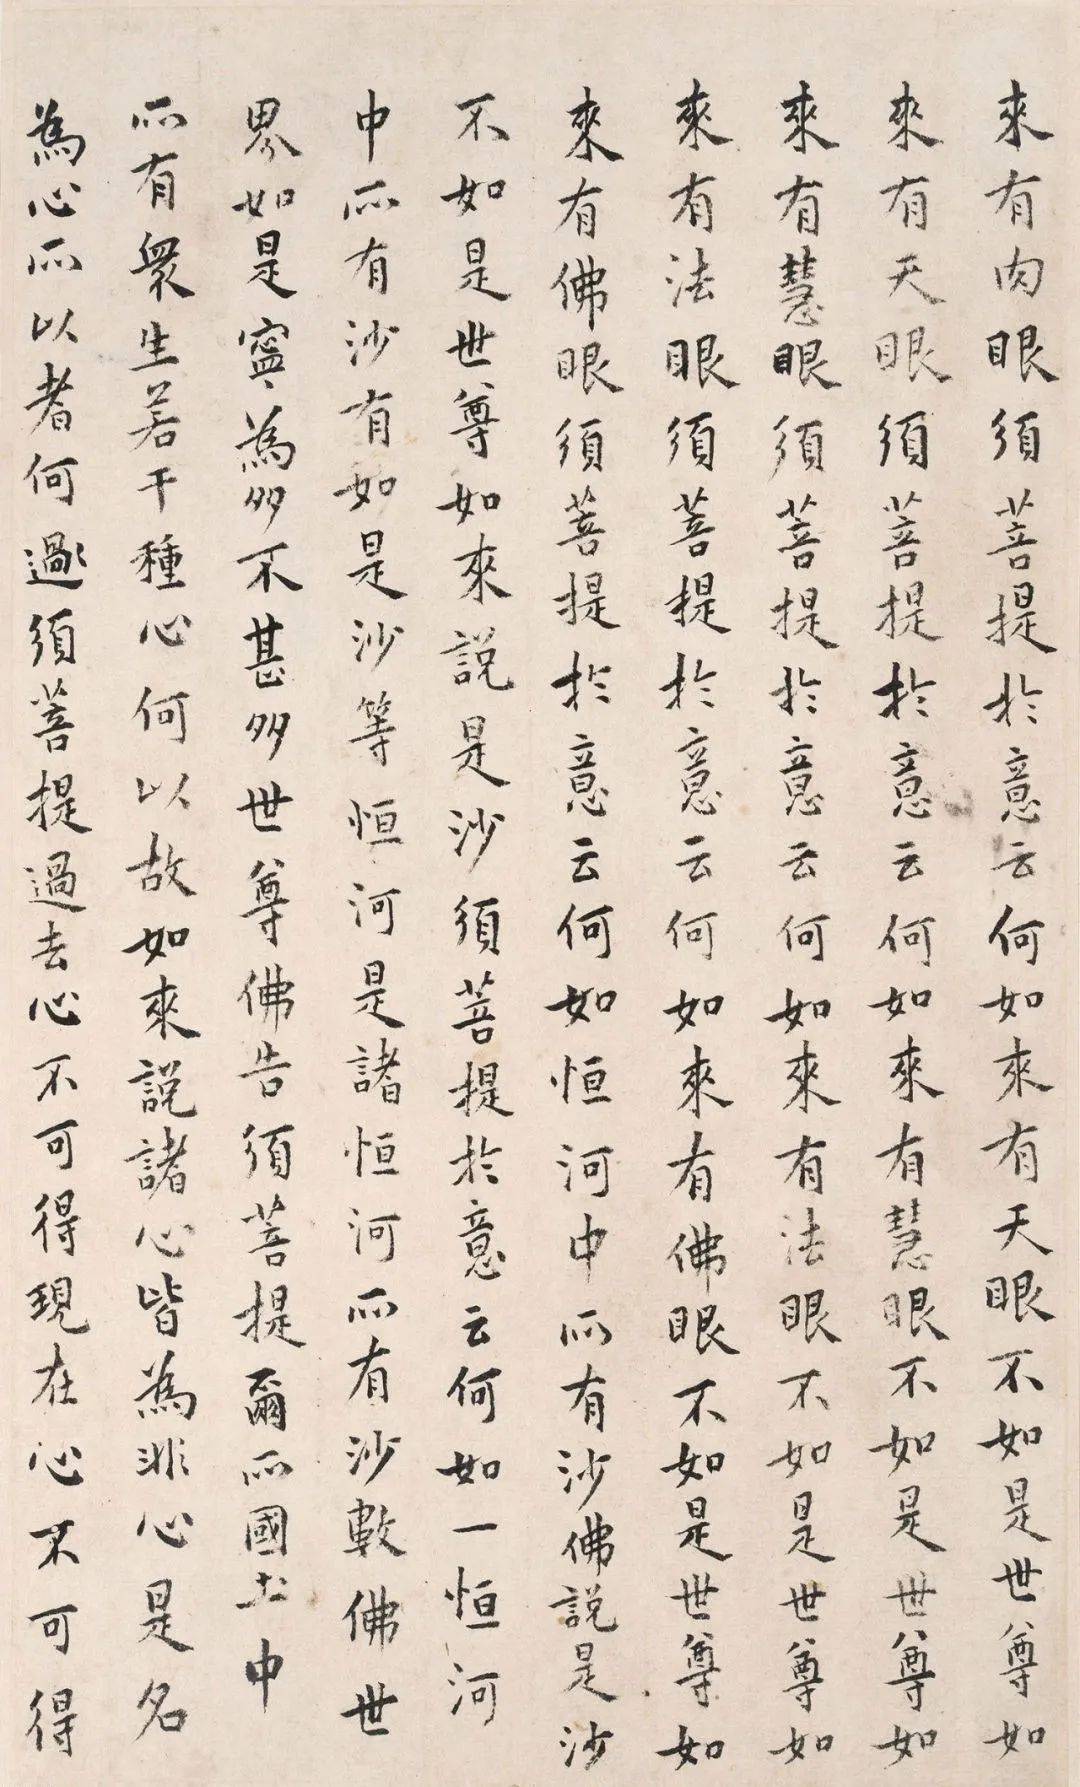 來有肉眼須菩提於意云何如來有天眼不如是世尊如
來有天眼須菩提於意云何如來有慧眼不如是世尊如
來有慧眼須菩提於意云何如來有法眼不如是世尊如
來有法眼須菩提於意云何如來有佛眼不如是世尊如
來有佛眼須菩提於意云何如恒河中所有沙佛說是沙
不如是世尊如來說是沙須菩提於意云何如一恒河
中所有沙有如是沙等恒河是諸恒河所有沙數佛世
界如是寧為多不甚多世尊佛告須菩提爾所國土中
所有衆生若干種心何以故如來説諸心皆為非心是名
為心所以者何過須菩提過去心不可得現在心不可得